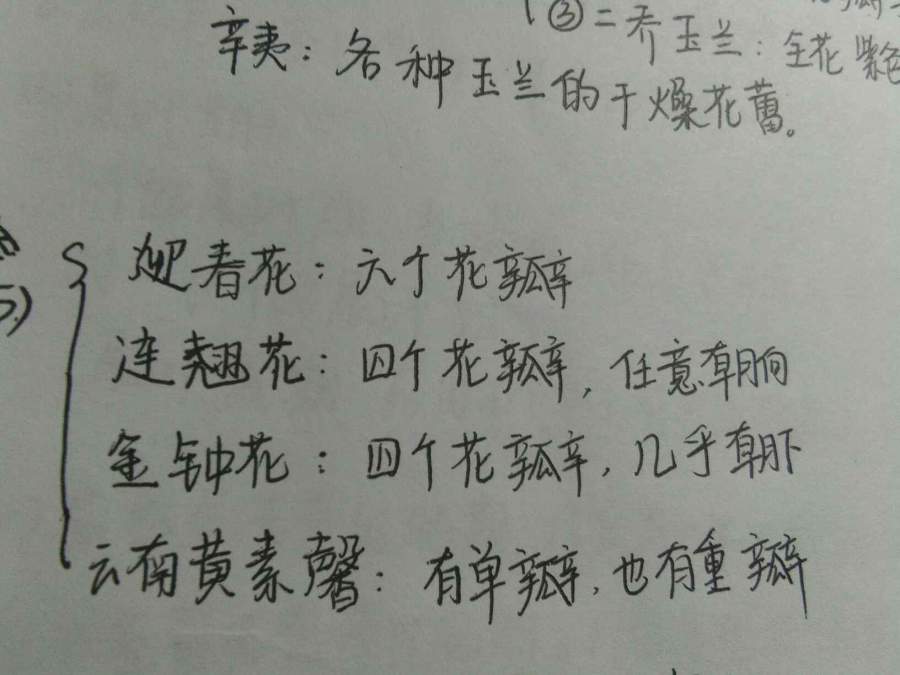 ③二乔玉兰：全花紫色
辛夷：各种玉兰的干燥花蕾。
迎春花：六个花瓣
连翘花：四个花瓣，任意朝向
金钟花：四个花瓣，几乎朝下
云南黄素馨：有单瓣，也有重瓣